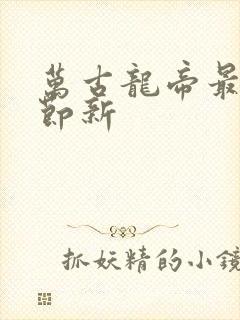 萬古龍帝最
節新
抓妖精的小鏡